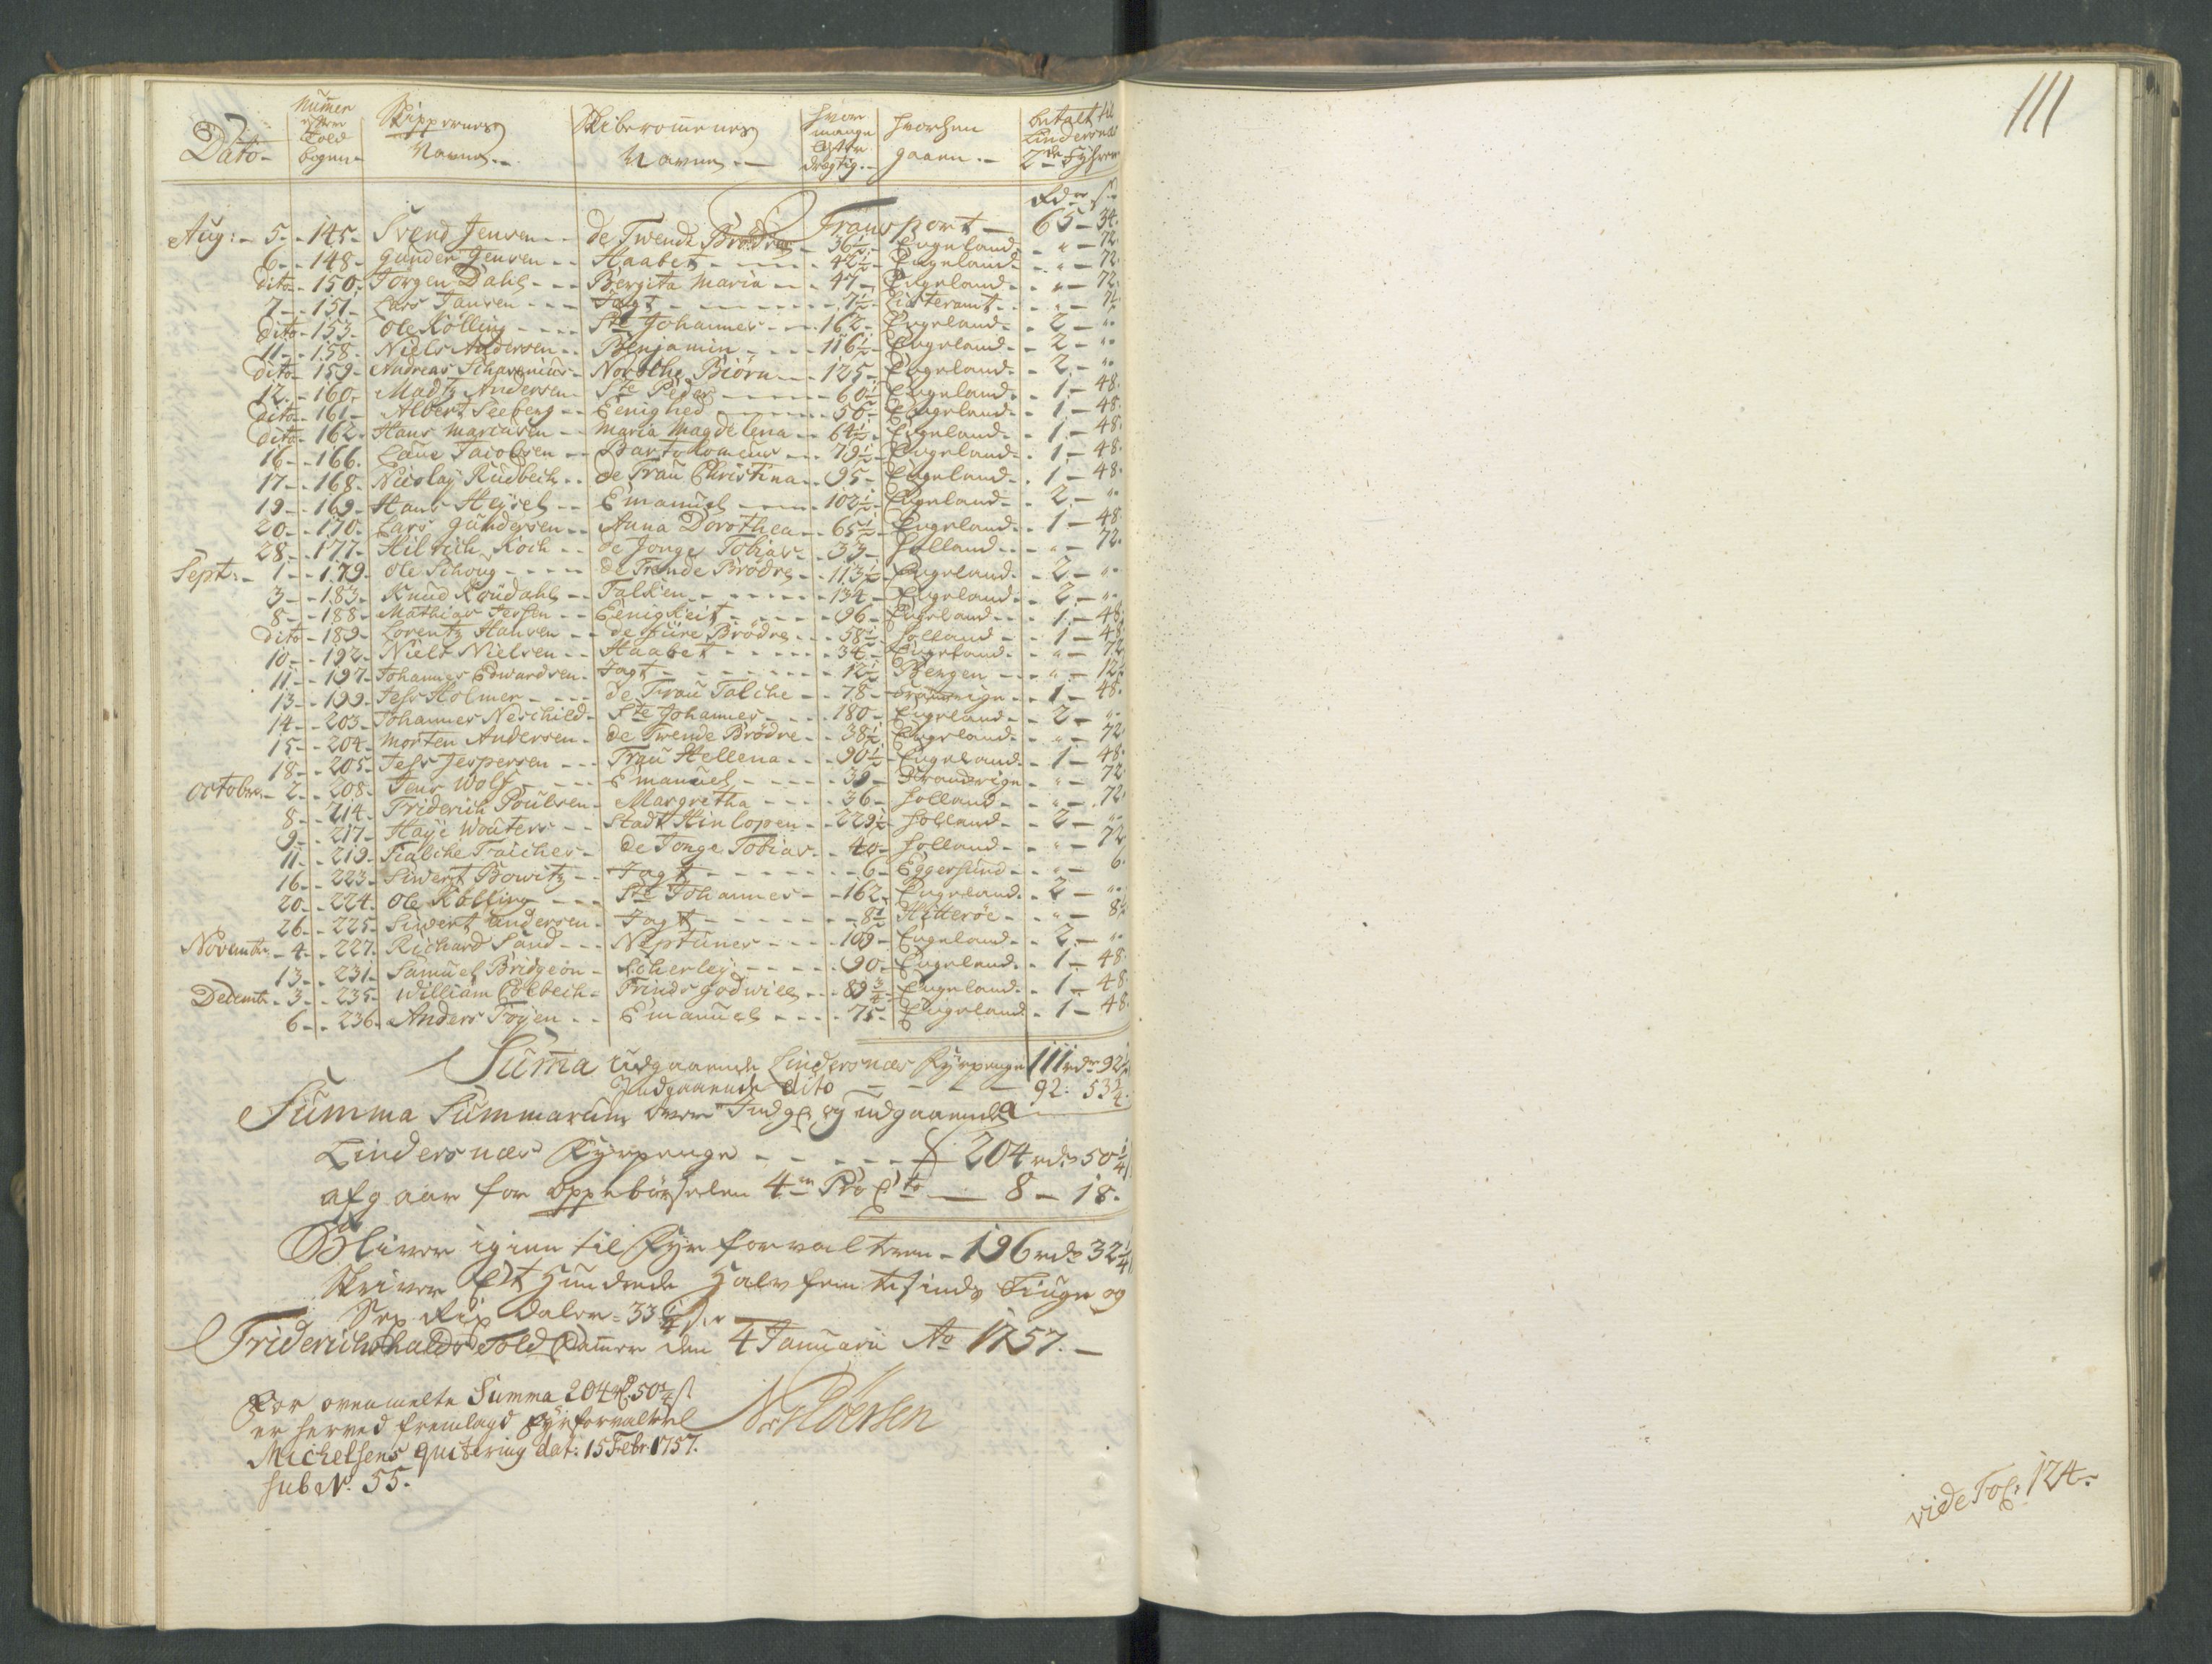 Dato
Numer efter Told bogen
Skippernes Navne
Skiberommenes Navne
hvor mange Læster drægtig
hvorhen gaaen
betalt til Lindersnæs 2de Fyhrer
Rdr s
Transport - 65 - 34.
Aug: - 5 - 145 - Svend Jensen - de Twende Brödre - 36½ - Engeland - " - 72.
6 - 148 - Gunder Jensen - Haabet - 42½ - Engeland - " - 72.
dito - 150 - Jörgen Dahl - Bergita Maria - 47 - Engeland - " - 72.
7 - 151 - Lars Jansen - Jagt - 7½ - Listeramt - " - 7½
dito - 153 - Ole Kölling - Ste Johannes - 162 - Engeland - 2 - "
11 - 158 - Niels Andersen - Benjamin - 116½ - Engeland - 2 - "
dito - 159 - Andreas Scharenius - Norsche Biörn - 125 - Engeland - 2 - "
12 - 160 - Madtz Andersen - Ste Peder - 60½ - Engeland - 1 - 48.
dito - 161 - Albert Seeberg - Eenighed - 56 - Engeland - 1 - 48.
dito - 162 - Hans Mariusen - Maria Magdelena - 64½ - Engeland - 1 - 48.
16 - 166 - Laue Jacobsen - Bartolomeus - 79½ - Engeland - 1 - 48.
17 - 168 - Nicolay Rudbech - de Frau Christina - 95 - Engeland - 1 - 48.
19 - 169 - Hans Heysel - Emanuel - 102½ - Engeland - 2 - "
20 - 170 - Lars Gundersen - Anna Dorothea - 65½ - Engeland - 1 - 48.
28 - 177 - Hilrich Koch - de Jonge Tobias - 33 - Holland - " - 72.
Sept: - 1 - 179 - Ole Schoug - de Twende Brödre - 113½ - Engeland - 2 - "
3 - 183 - Knud Roudahl - Falken - 134 - Engeland - 2 - "
8 - 188 - Mathias Jessen - Eenigkeit - 96 - Engeland - 1 - 48.
dito - 189 - Lorentz Hansen - de fiire Brödre - 58½ - Holland - 1 - 48.
10 - 192 - Niels Nielsen - Haabet - 36 - Engeland - " - 72
11 - 197 - Johannes Edwardsen - Jagt - 12½ - Bergen - " - 12½
13 - 199 - Jess Holmer - de Frau Talche - 78 - Franckrige - 1 - 48.
14 - 203 - Johannes Neschild - Ste Johannes - 180 - Engeland - 2 - "
15 - 204 - Morten Andersen - de Twende Brödre - 38½ - Engeland - " - 72
18 - 205 - Jess Jespersen - Frau Hellena - 90½ - Engeland - 1 - 48.
October - 2 - 208 - Jens Wolf - Emanuel - 39 - Franckrige - " - 72.
8 - 214 - Friderich Poulsen - Margretha - 36 - Holland - " - 72.
9 - 217 - Haye Wouters - Stadt Hinlopen - 229½ - Holland - 2 - "
11 - 219 - Fialche Fraiches - de Jonge Tobias - 40 - Holland - " - 72
16 - 223 - Siwert Bowitz - Jagt - 6 - Eggersund - " - 6.
20 - 224 - Ole Kölling - Ste Johannes - 162 - Engeland - 2 - "
26 - 225 - Siwert Andersen - Jagt - 8½ - Hitteröe - " - 8½
Novembr - 4 - 227 - Richard Sand - Neptunes - 109 - Engeland - 2 - "
13 - 231 - Samuel Bridgeon - Loherley - 90 - Engeland - 1 - 48.
Decembr - 3 - 235 - William Colbech - Frinds godwill - 89¾ - Engeland - 1 - 48.
6 - 236 - Anders Foyen - Emanuel - 75 - Engeland - 1 - 48.
Suma udgaaende Lindersnæs Fyrpenge 111 rdr 92½
Indgaaende dito - 92: 53¾.
Summa Summarum over Indg: og udgaaende
Lindersnæs Fyrpenge - 204 rdr 50¼
afgaar for oppebörselen 4 Pro Cto - 8 - 18.
Bliver igien til Fyr forvalteren - 196 rdr 32¼
Skriver Et Hundrede Halv femtesinds Tiuge og
Sex Rix Daler - 33¼ s.
Friderichshalds Told Camer den 4 Januarii Ao 1757.
For ovenmelte Summa 204 rd. 50¼ s
er herved fremlagd Fyrforvalter
Michelsens quitering dat: 15 Febr. 1757.
sub No. 55.
111
vide Fol: 124.